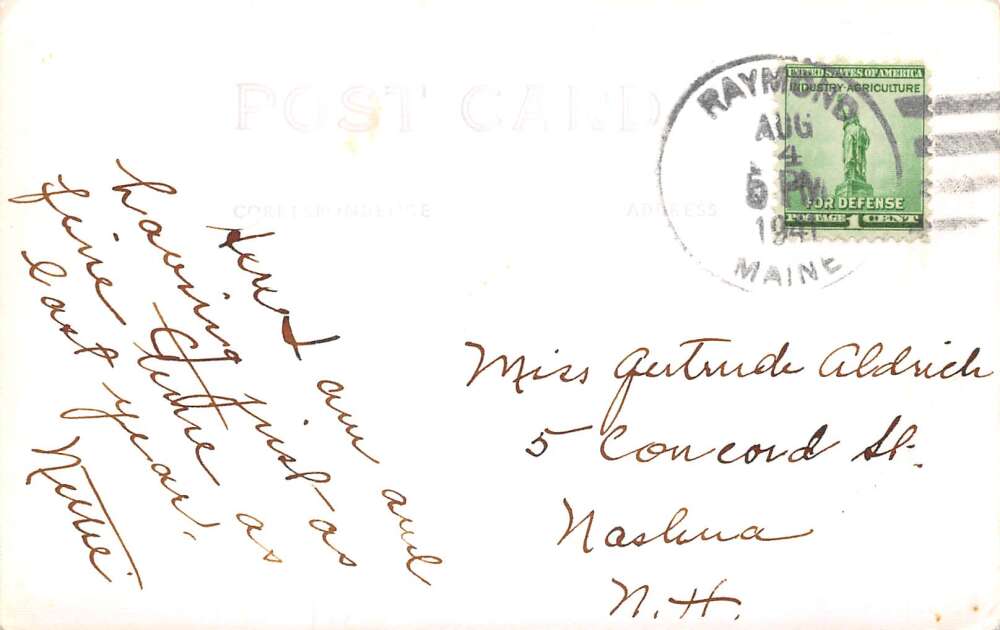 POST CARD
CORRESPONDENCE
ADDRESS
RAYMOND
AUG
4
5 PM
1941
MAINE
UNITED STATES OF AMERICA
INDUSTRY · AGRICULTURE
FOR DEFENSE
POSTAGE 1 CENT
Here I am and
having just as
fine time as
last year.
Nettie
Miss Gertrude Aldrich
5 Concord St.
Nashua
N.H.